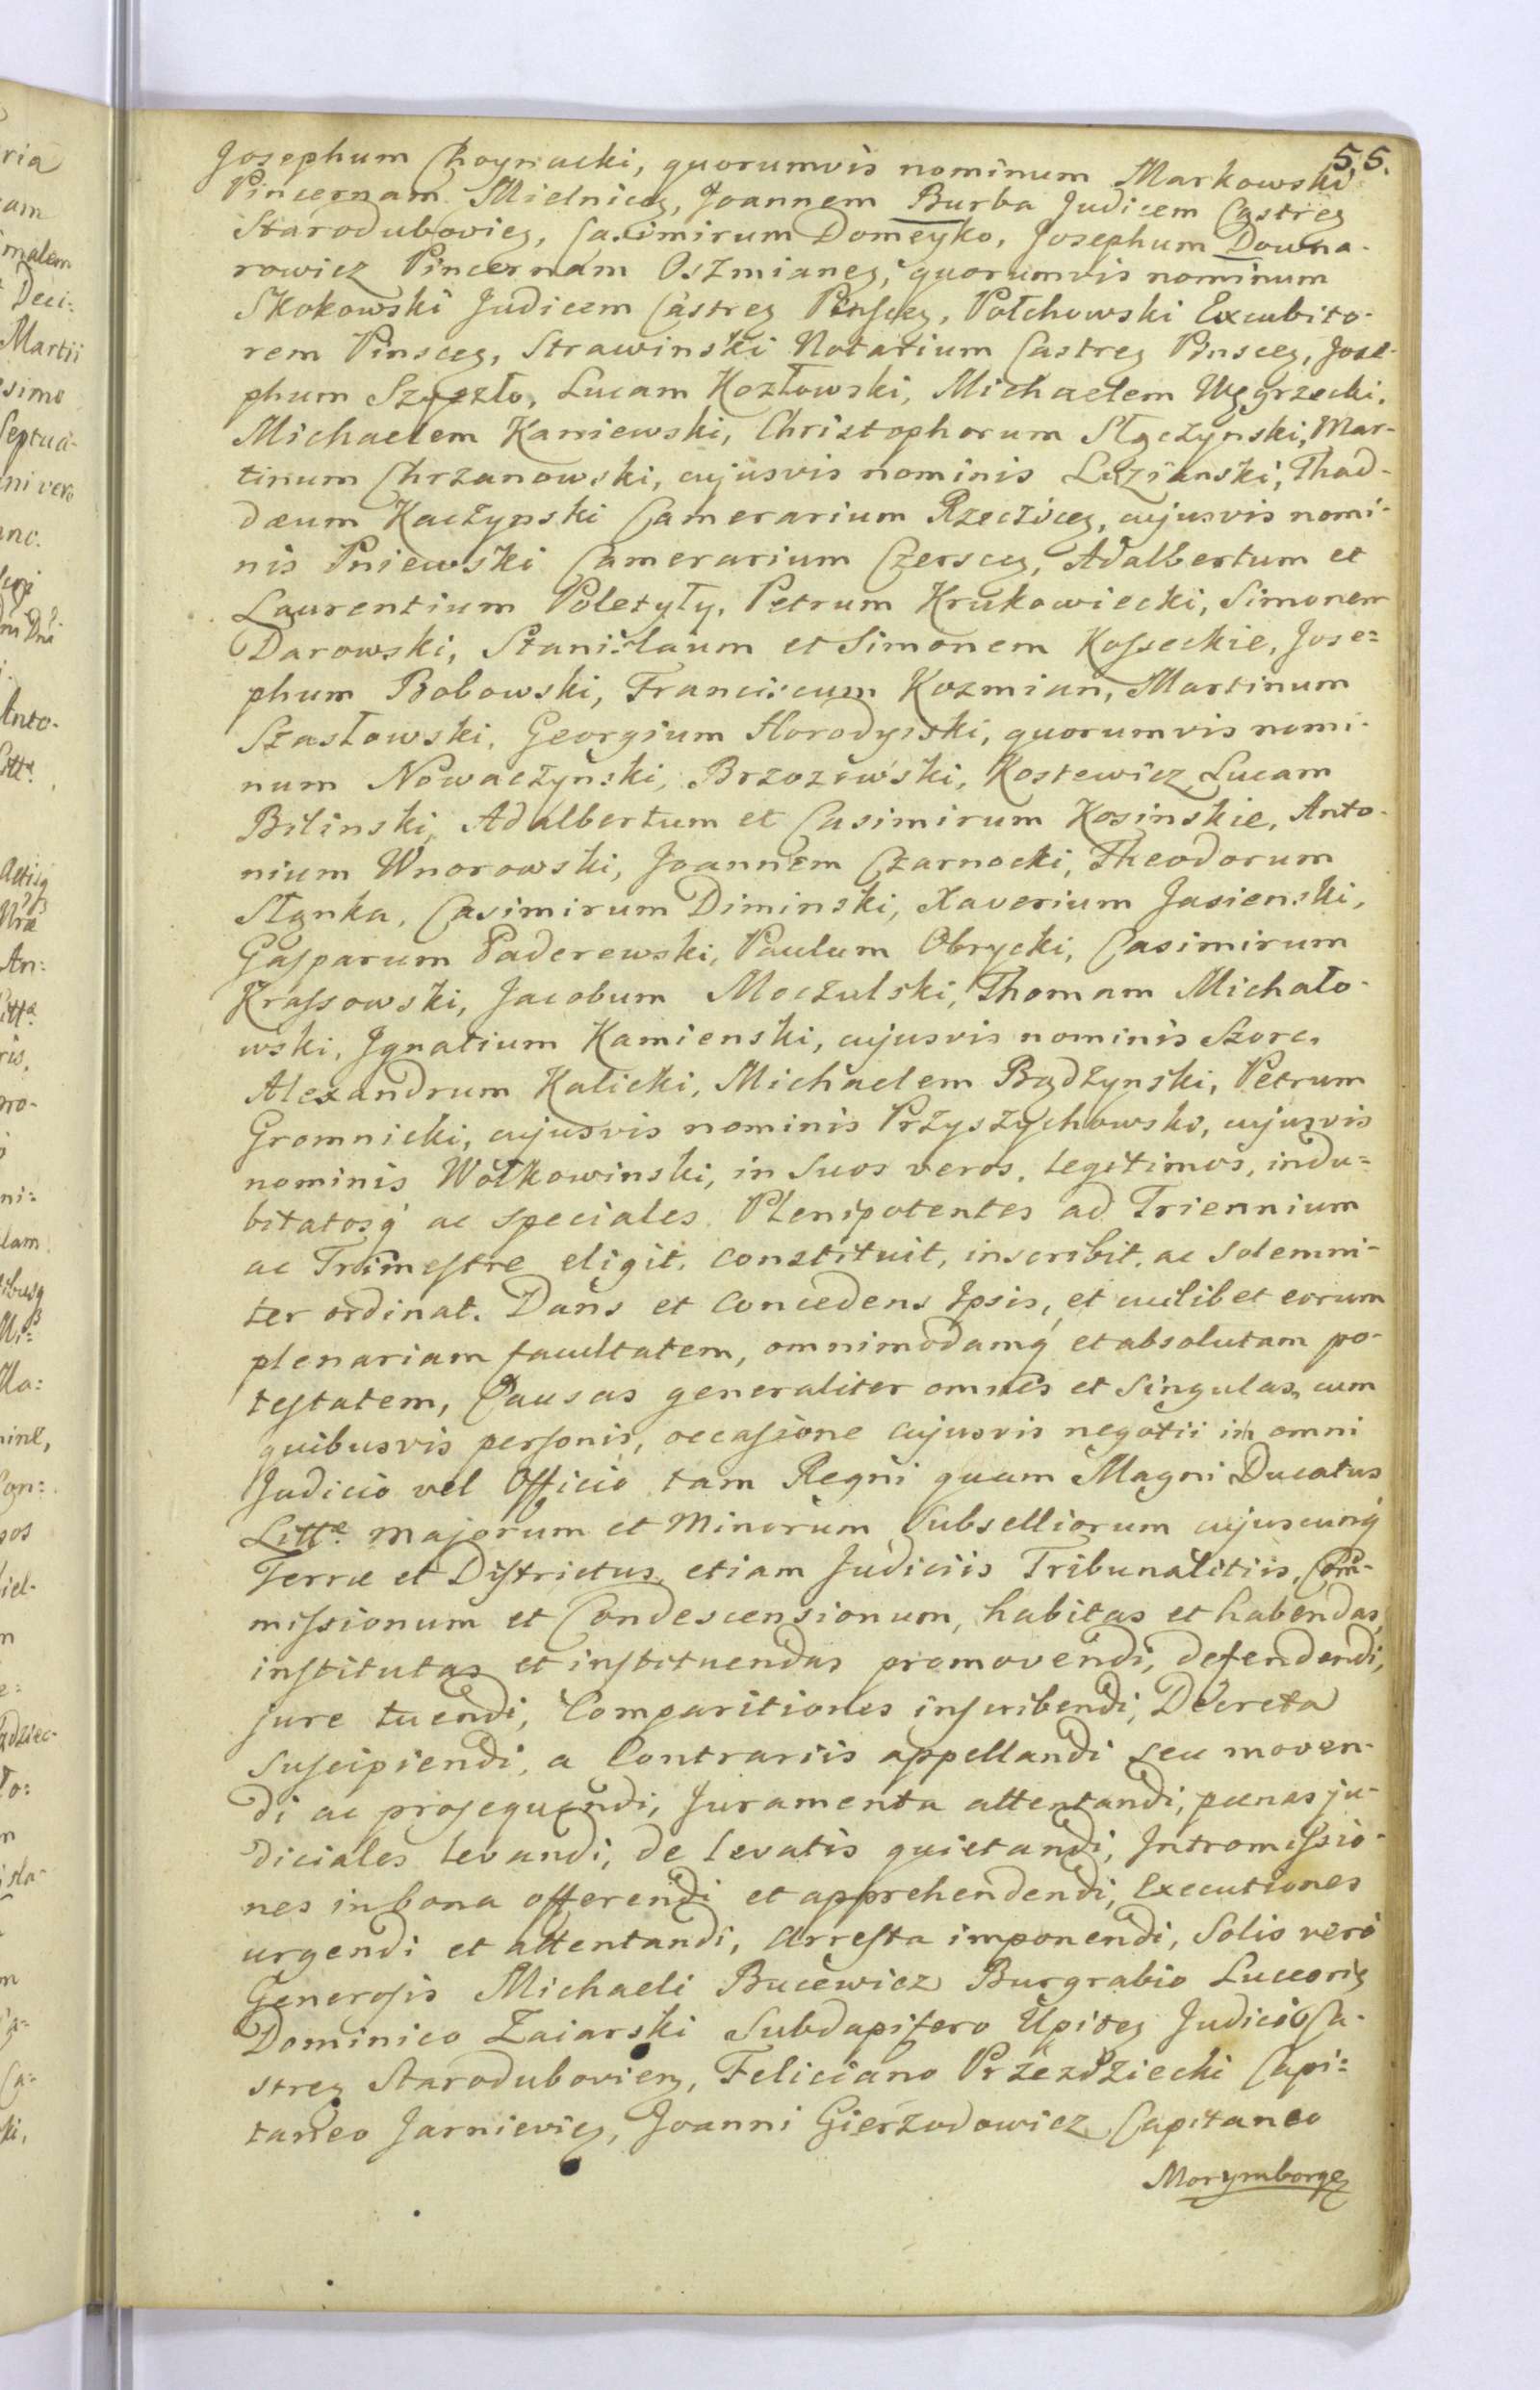 55.
Josephum Choynacki, quorumvis nominum Markowski
Pincernam Mielnicę, Joannem Burba Judicem Castreę
Starodubovieę, Casimirum Domeyko, Josephum Downa-
rowicz Pincernam Oszmianeę, quorumvis nominum
Skokowski Judicem Castreę Pinsceę, Połchowski Excubito-
rem Pinsceę, Strawinski Notarium Castreę Pinsceę, Jose-
phum Szyszło, Lucam Kozłowski, Michaelem Węgrzecki,
Michaelem Kaniewski, Christophorum Stączynski, Mar-
tinum Chrzanowski, cujusvis nominis Lizianski, Thad-
dæum Kaczynski Camerarium Rzecziceę, cujusvis nomi-
nis Pniewski Camerarium Czersceę, Adalbertum et
Laurentium Poletyły, Petrum Krukowiecki, Simonem
Darowski, Stanislaum et Simonem Kosseckie, Jose=
phum Bobowski, Franciscum Kozmian, Martinum
Szasłowski, Georgium Horodyski, quorumvis nomi-
num Nowaczyński, Brzozowski, Kostewicz, Lucam
Bilinski, Adalbertum et Casimirum Kosinskie, Anto-
nium Wnorowski, Joannem Czarnocki, Theodorum
Stąnka, Casimirum Diminski, Xaverium Jasienski,
Gasparum Paderewski, Paulum Obrycki, Casimirum
Krassowski, Jacobum Moczulski, Thomam Michało-
wski, Ignatium Kamienski, cujusvis nominis Szorc,
Alexandrum Kalicki, Michaelem Bądzynski, Petrum
Gromnicki, cujusvis nominis Przyszychowski, cujusvis
nominis Wołkowinski, in suos veros, legitimos, indu=
bitatosq́ ac speciales Plenipotentes ad Triennium
ac Trimestre eligit, constituit, inscribit, ac solemni-
ter ordinat. Dans et concedens Ipsis, et cuilibet eorum
plenariam facultatem, omnimodamq́ et absolutam po-
testatem, Causas generaliter omnes et singulas, cum
quibusvis personis, occasione cujusvis negotii in omni
Judicio vel Officio tam Regni quam Magni Ducatus
Littæ. majorum et Minorum Subselliorum cujuscunq́
Terræ et Districtus, etiam Judiciis Tribunalitiis, Com-
missionum et Condescensionum, habitas et habendas,
institutas et instituendas promovendi, defendendi,
jure tuendi, Comparitiones inscribendi, Decreta
suscipiendi, a Contrariis appellandi seu moven-
di ac prosequendi, Juramenta attentandi, pœnas ju-
diciales levandi, de levatis quietandi, Intromissio-
nes in bona offerendi et apprehendendi, Executiones
urgendi et attentandi, Arresta imponendi, Solis verò
Generosis Michaeli Bucewicz Burgrabio Luceorię
Dominico Zaiarski Subdapifero Upiteę Judicio Ca-
streę Starodubovieę, Feliciano Przezdziecki Capi=
taneo Jarnievieę, Joanni Gierzodowicz Capitaneo
Morymborgę